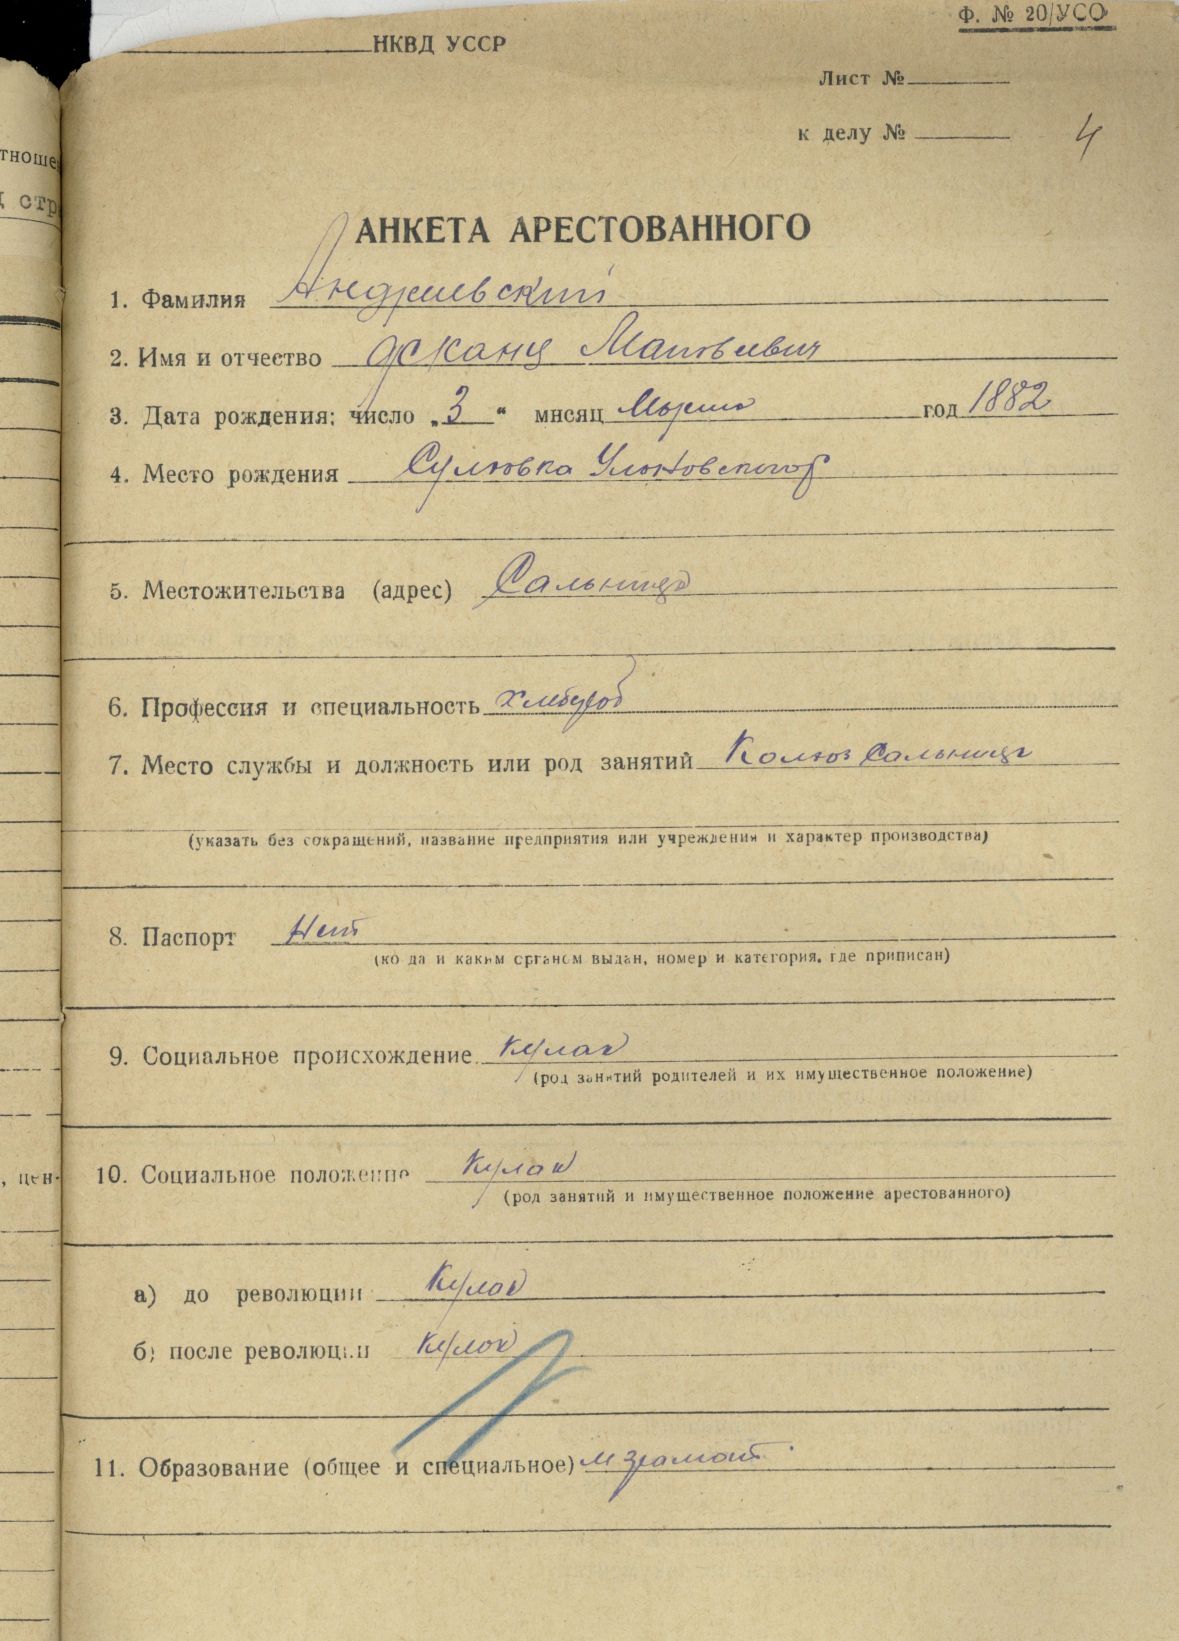 Ф. № 20/УСО
НКВД УССР
Лист №
к делу №
4
тноше
стр
АНКЕТА АРЕСТОВАННОГО
1. Фамилия Андриевский
2. Имя и отчество Матвеевич
3. Дата рождения: число „3“ мнсяц Марта год 1882
4. Место рождения
5. Местожительства (адрес) Сальница
6. Профессия и специальность хлебороб
7. Место службы и должность или род занятий Колхоз Сальница
(указать без сокращений, название предприятия или учреждения и характер производства)
8. Паспорт Нет
(ко да и каким органом выдан, номер и категория, где приписан)
9. Социальное происхождение кулак
(род занятий родителей и их имущественное положение)
, цен-
10. Социальное положение Кулак
(род занятий и имущественное положение арестованного)
а) до революции Кулак
б) после революции Кулак
11. Образование (общее и специальное) м грамот